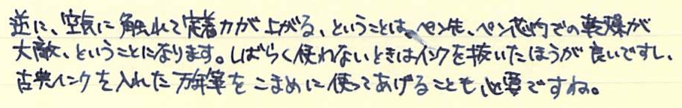 逆に、空気に触れて定着力が上がる、ということは、ペン先、ペン芯内での乾燥が
大敵、ということになります。しばらく使わないときはインクを抜いたほうが良いですし、
古典インクを入れた万年筆をこまめに使ってあげることも必要ですね。